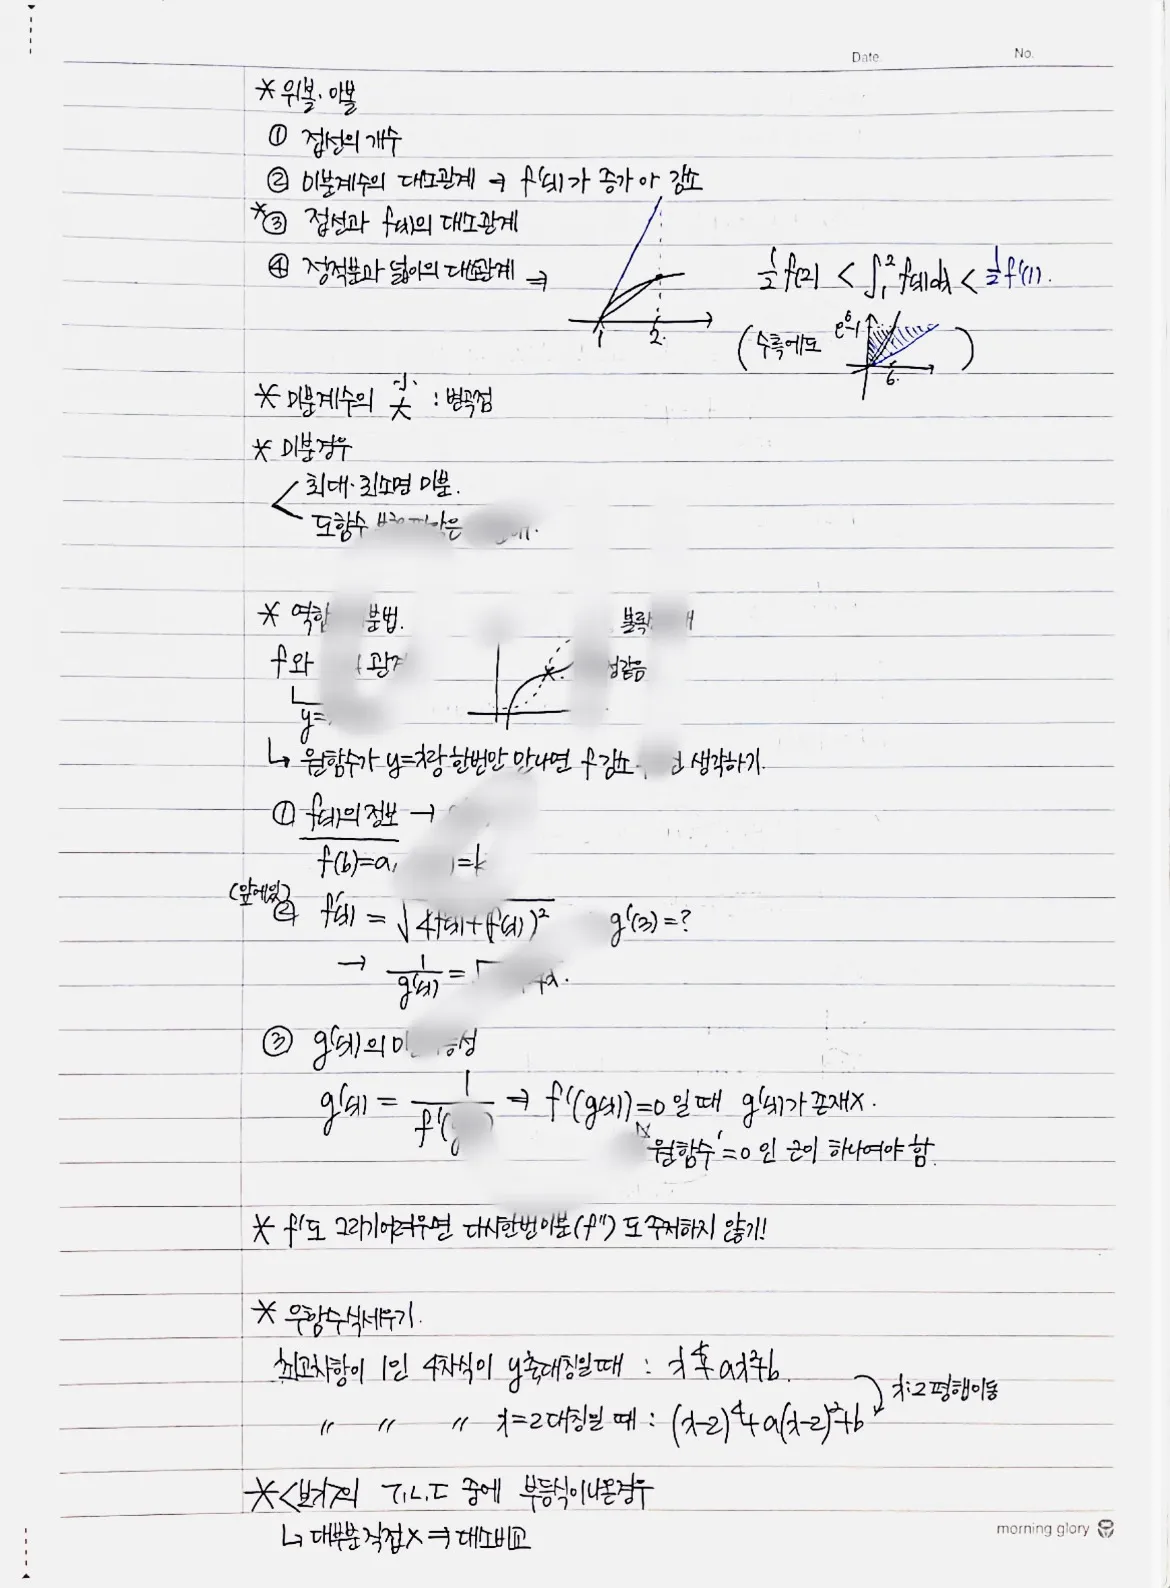 Date. No.
* 위볼·아볼
① 접선의 개수
② 미분계수의 대소관계 → f'(x)가 증가 or 감소
*③ 접선과 f(x)의 대소관계
④ 정적분과 넓이의 대소관계 ⇒
1/2 f(2) < ∫₁² f(x)dx < 1/2 f'(1).
1 2.
(수특에도 e⁶-1 6. )
* 미분계수의 : 변곡점
* 미분경우
최대·최소면 미분.
도함수
* 역함 분법.
f와 관계
y=
↳ 원함수가 y=x랑 한번만 만나면 f 감소 생각하기.
① f(x)의 정보 →
f(b)=a, =k
(앞에있)
② f'(x) = √4f(x)+(f(x))² g'(3)=?
→ 1/g'(x) =
③ g'(x)의
g'(x) = 1/f'(g ⇒ f'(g(x))=0 일 때 g'(x)가 존재X.
원함수'=0 인 근이 하나여야 함.
* f'도 그리기어려우면 다시한번미분(f'')도 주저하지 않기!
* 우함수식세우기.
최고차항이 1인 4차식이 y축대칭일때 : x⁴+ax²+b.
〃 〃 〃 x=2대칭일 때 : (x-2)⁴+a(x-2)²+b
x:2 평행이동
*<보기>의 ㄱ,ㄴ,ㄷ 중에 부등식이나온경우
↳ 대부분직접X ⇒ 대소비교
morning glory